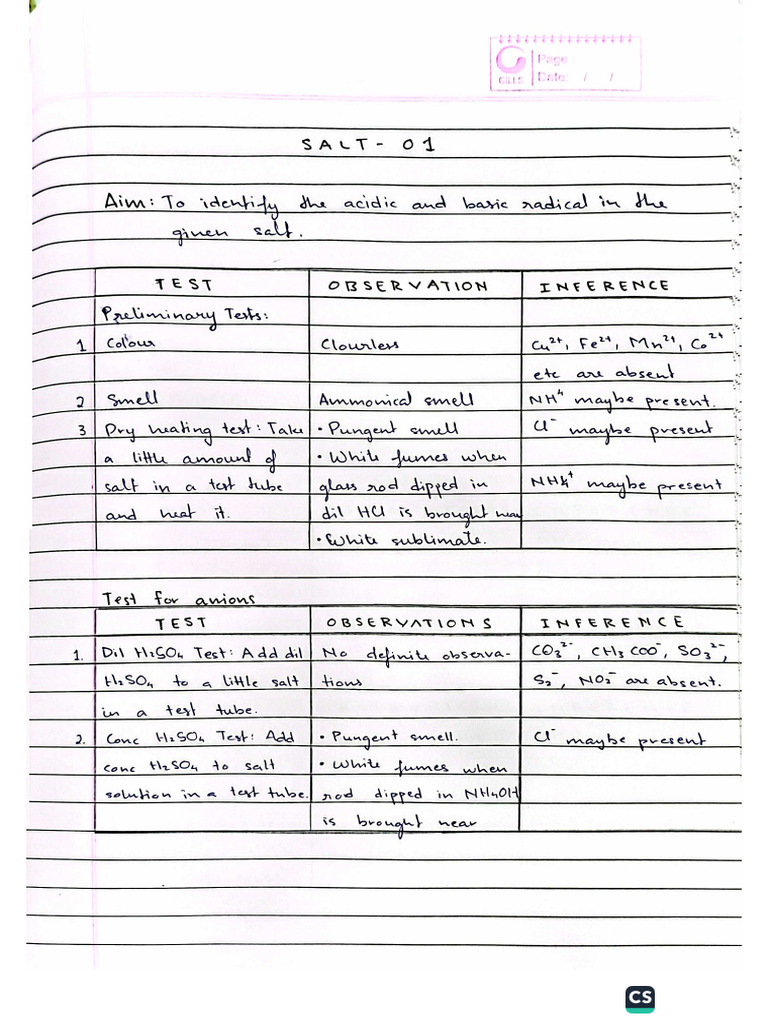 GILLS
Page:
Date: / /
SALT-01
Aim: To identify the acidic and basic radical in the
given salt.
TEST OBSERVATION INFERENCE
Preliminary Tests:
1 Colour Clourless Cu²⁺, Fe²⁺, Mn²⁺, Co²⁺
etc are absent
2 Smell Ammonical smell NH⁴ maybe present.
3 Dry heating test: Take • Pungent smell Cl⁻ maybe present
a little amount of • White fumes when
salt in a test tube glass rod dipped in NH4⁺ maybe present
and heat it. dil HCl is brought near
• White sublimate.
Test for anions
TEST OBSERVATIONS INFERENCE
1. Dil H₂SO₄ Test: Add dil No definite observa- CO₃²⁻, CH₃COO⁻, SO₃²⁻,
H₂SO₄ to a little salt tions S₂⁻, NO₂⁻ are absent.
in a test tube.
2. Conc H₂SO₄ Test: Add • Pungent smell. Cl⁻ maybe present
conc H₂SO₄ to salt • White fumes when
solution in a test tube. rod dipped in NH₄OH
is brought near
CS